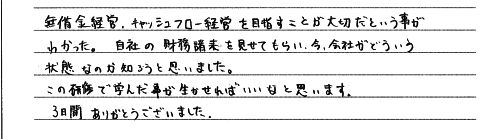 無借金経営、キャッシュフロー経営を目指すことが大切だという事が
わかった。自社の財務諸表を見せてもらい、今、会社がどういう
状態なのか知ろうと思いました。
この研修で学んだ事が生かせればいいなと思います。
3日間ありがとうございました.